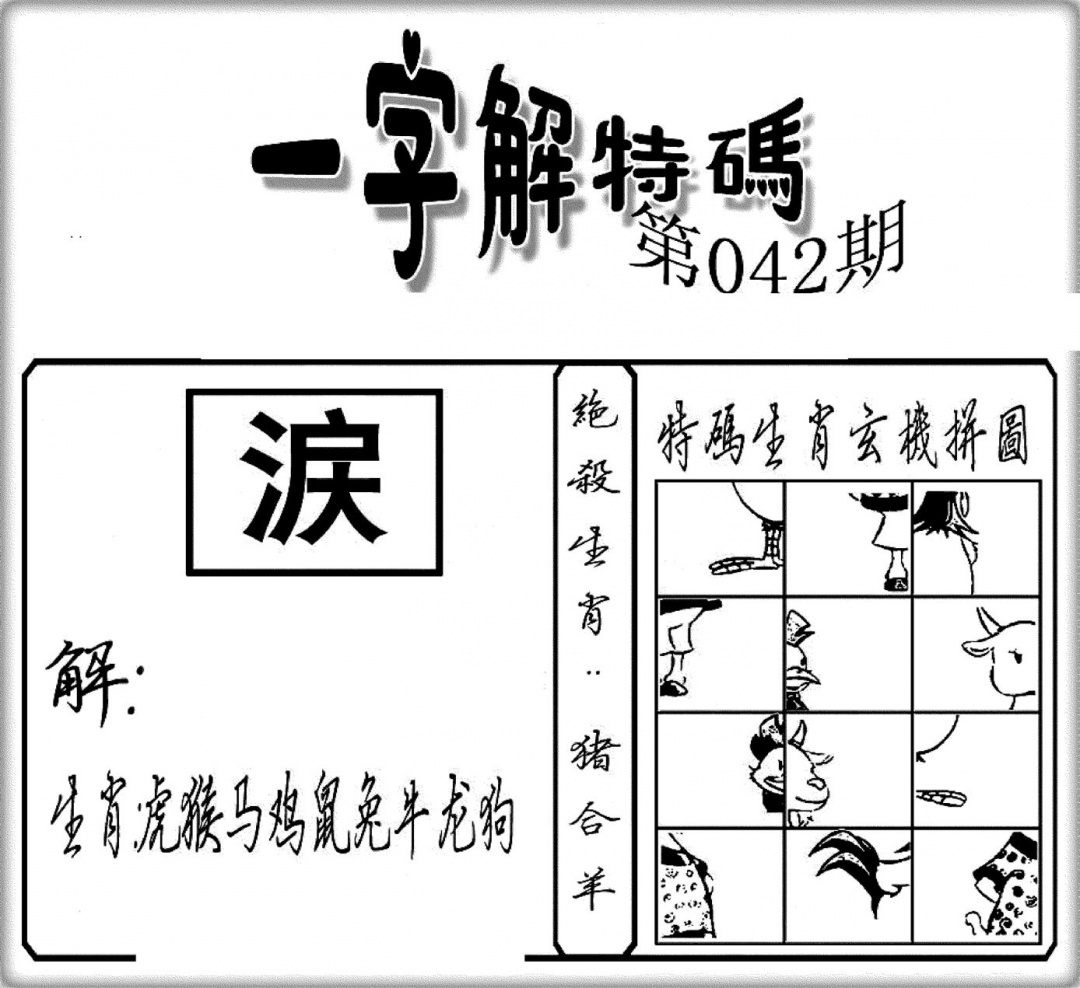 一字解特碼
第042期
淚
解:
生肖虎猴马鸡鼠兔牛龙狗
絕殺生肖:猪合羊
特碼生肖玄機拼圖